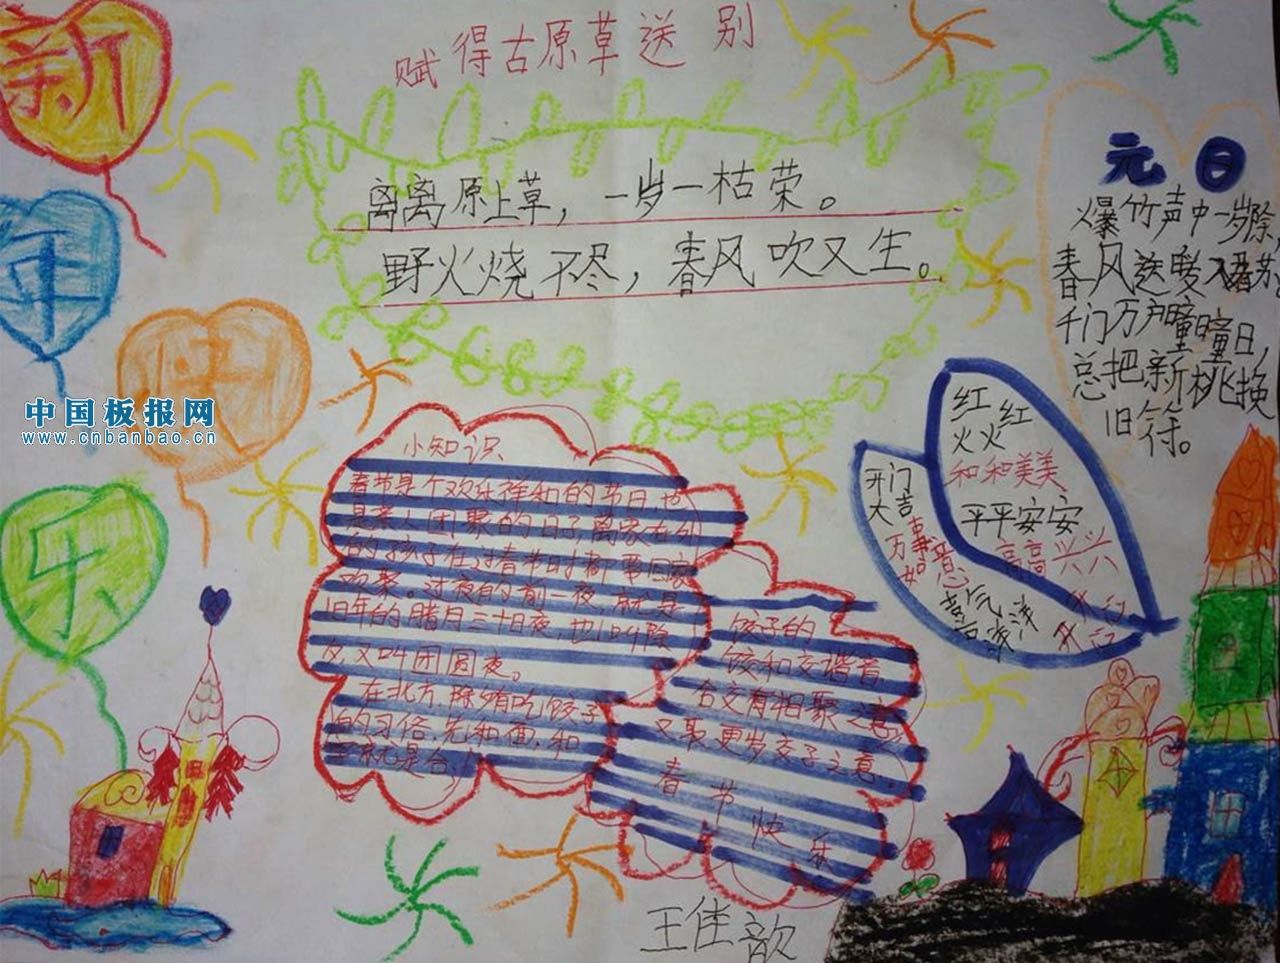 新
年
快
乐
中国板报网
www.cnbanbao.cn
赋得古原草送别
离离原上草，一岁一枯荣。
野火烧不尽，春风吹又生。
元日
爆竹声中一岁除，
春风送暖入屠苏。
千门万户瞳瞳日，
总把新桃换
旧符。
红红
火火
和和美美
平平安安
高高兴兴
开门
大吉
万事
如意
小知识
春节是个欢乐祥和的节日，也
是亲人团聚的日子，离家在外
的孩子在过春节时都要回家
欢聚。过夜的前一夜，就是
旧年的腊月三十日夜，也叫除
夕，又叫团圆夜。
在北方，除夕有吃饺子
的习俗，先和面，和
字就是合，
饺子的
饺和交谐音
合交有相聚之意，
又取更岁交子之意。
春节快乐
王佳歆